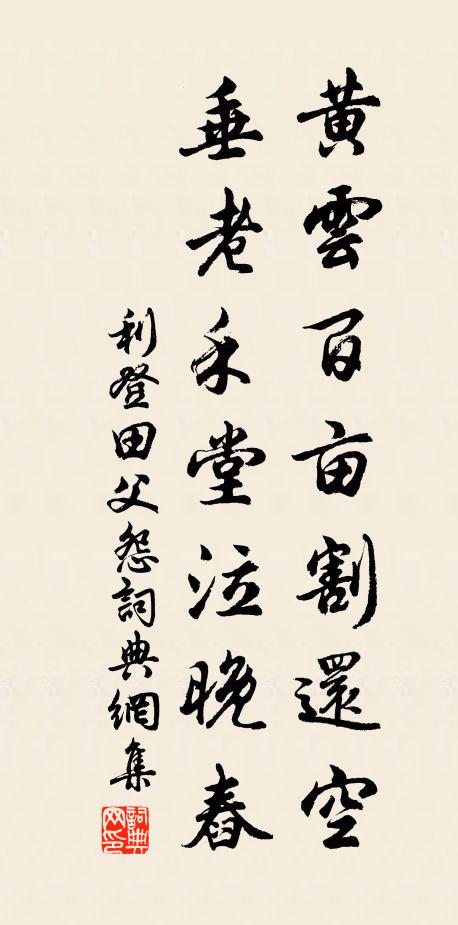 黄雲百亩割還空
垂老禾堂泣晚舂
利登田父怨詞典網集
詞典网印